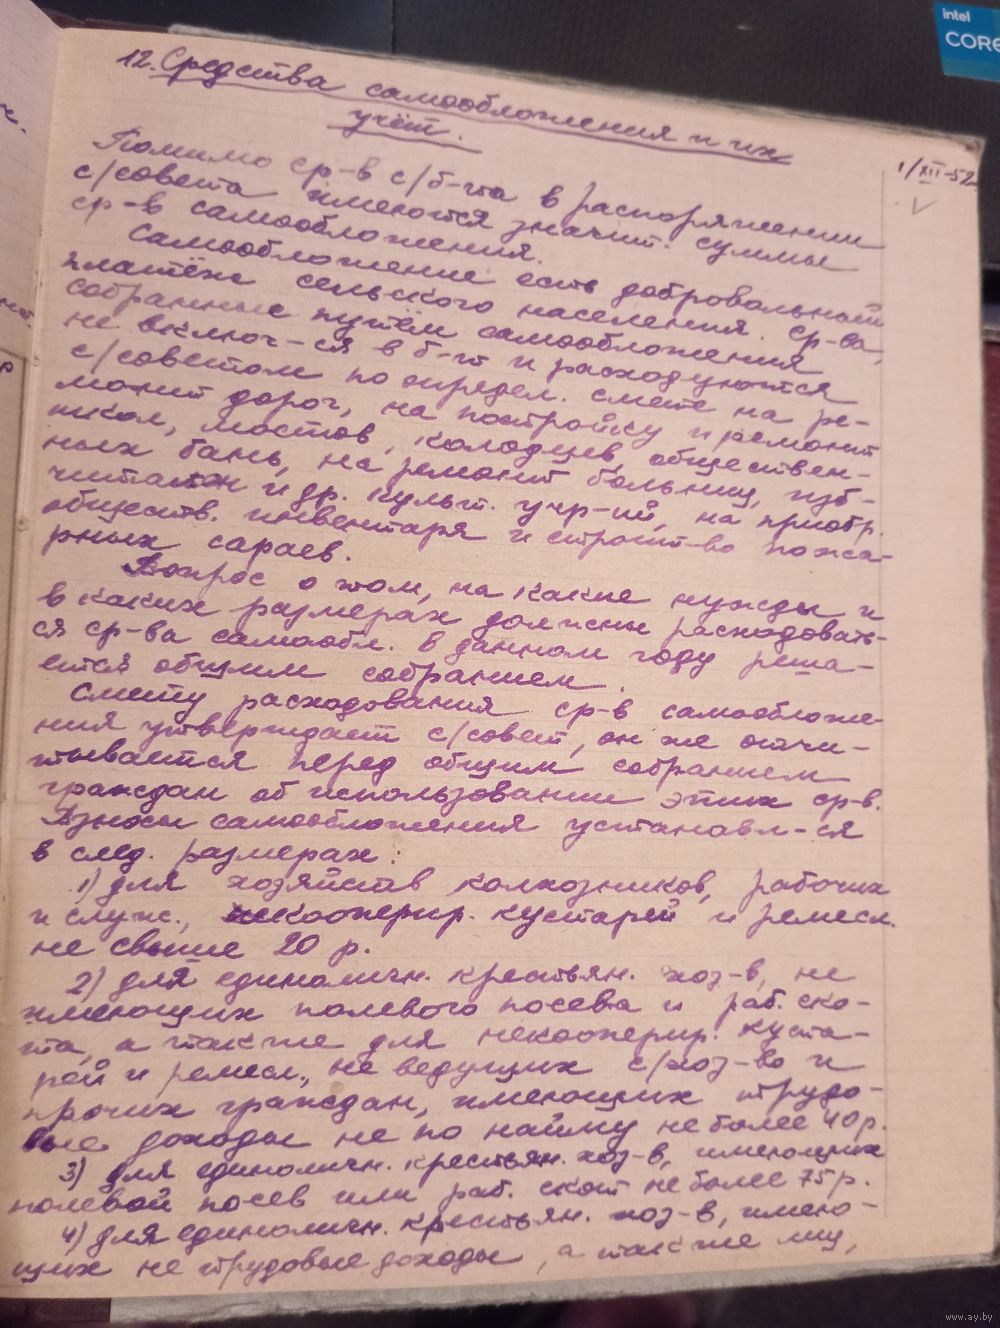 intel
CORE
12. Средства самообложения и их
учёт.
1/XII-52
Помимо ср-в с/б-та в распоряжении
с/совета имеются значит. суммы
ср-в самообложения.
Самообложение есть добровольный
платёж сельского населения. Ср-ва,
собранные путём самообложения
не включ-ся в б-т и расходуются
с/советом по определ. смете на ре-
монт дорог, на постройку и ремонт
школ, мостов, колодцев, обществен-
ных бань, на ремонт больниц, изб-
читален и др. культ. учр-ий, на приобр.
обществ. инвентаря и строит-во пожа-
рных сараев.
Вопрос о том, на какие нужды и
в каких размерах должны расходоват-
ся ср-ва самообл. в данном году реша-
ется общим собранием.
Смету расходования ср-в самообложе-
ния утверждает с/совет, он же отчи-
тывается перед общим собранием
граждан об использовании этих ср-в.
Взносы самообложения устанавл-ся
в след. размерах:
1) для хозяйств колхозников, рабочих
и служ., кооперир. кустарей и ремесл.
не свыше 20 р.
2) для единоличн. крестьян. хоз-в, не
имеющих полевого посева и раб. ско-
та, а также для некооперир. куста-
рей и ремесл., не ведущих с/хоз-во и
прочих граждан, имеющих трудо-
вые доходы не по найму не более 40 р.
3) для единоличн. крестьян. хоз-в, имеющих
полевой посев или раб. скот не более 75 р.
4) для единоличн. крестьян. хоз-в, имею-
щих не трудовые доходы, а также лиц,
www.ay.by